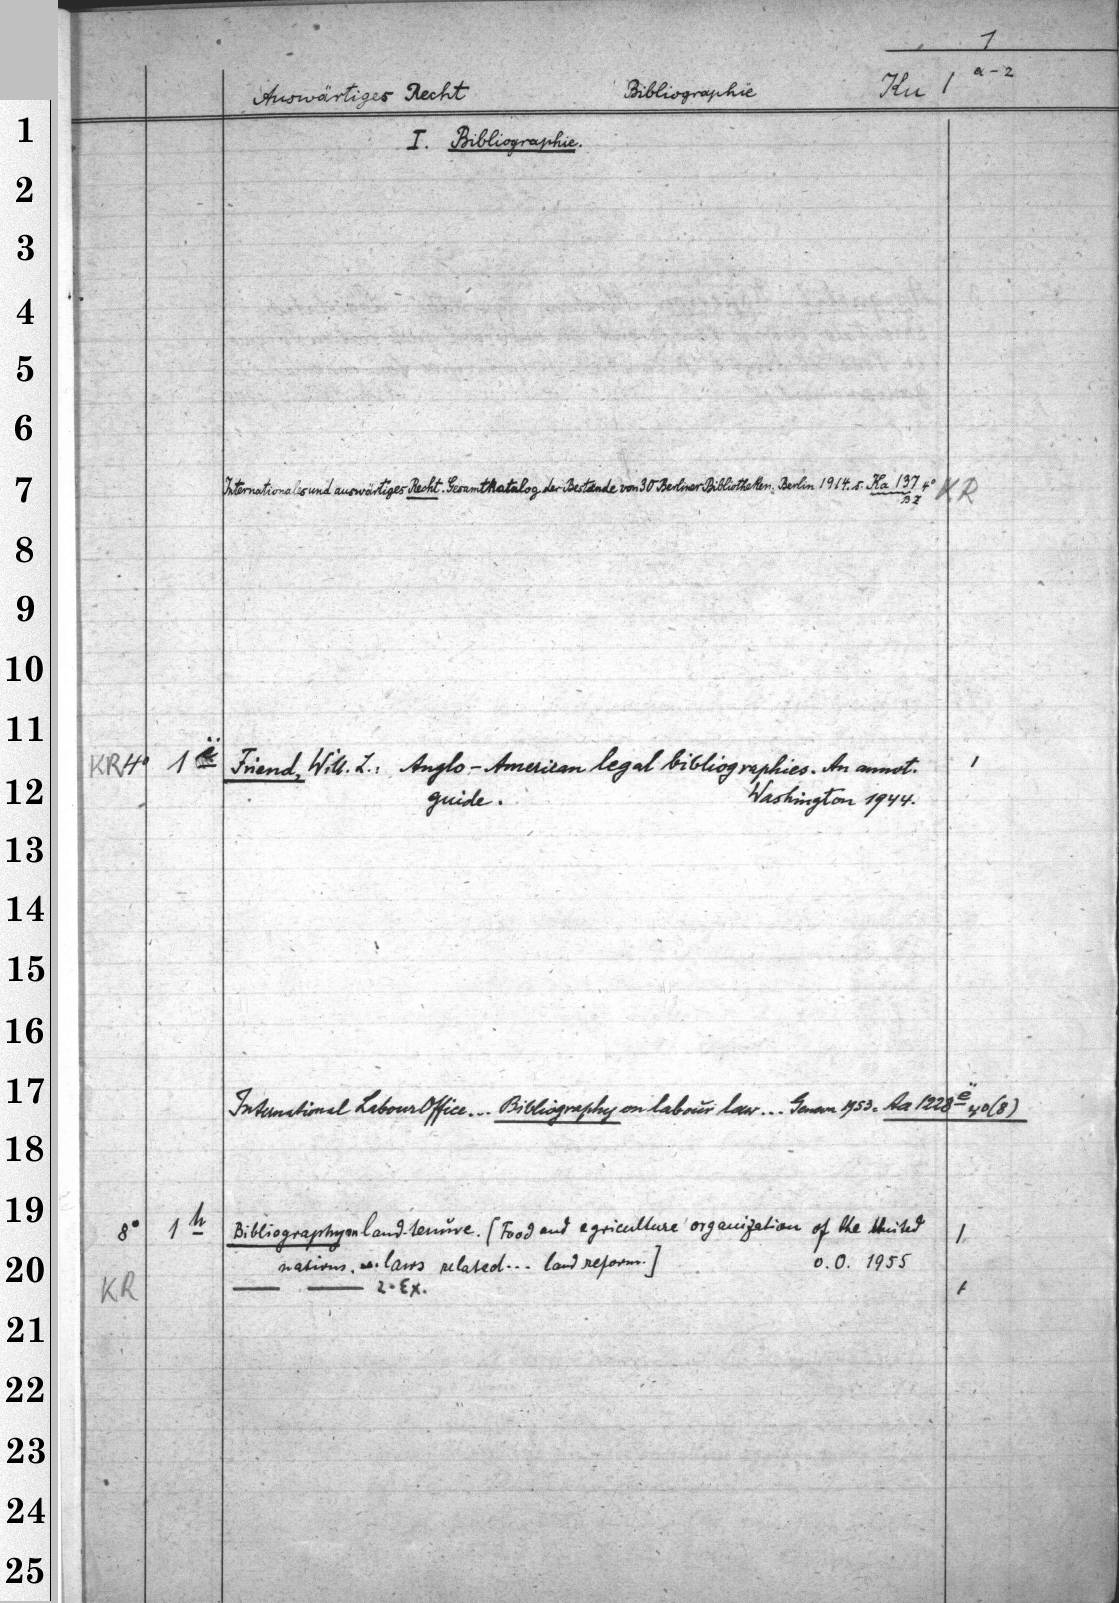 1
Auswärtiges Recht Bibliographie Ku 1 a-z
1 I. Bibliographie.
2
3
4
5
6
7 Internationales und auswärtiges Recht. Gesamtkatalog der Bestände von 30 Berliner Bibliotheken. Berlin 1914. s. Ka 137 4° KR
BZ
8
9
10
11
KR 4° 1 ë Friend, Will. L.: Anglo-American legal bibliographies. An annot. 1
12 guide. Washington 1944.
13
14
15
16
17 International Labour Office... Bibliography on labour law... Genava 1953. Aa 1228 ë 40(8)
18
19 8° 1 h Bibliography on land-tenure. [Food and agriculture organization of the United 1
20 nations. laws related... land reform.] o.O. 1955
KR — — 2. Ex. 1
21
22
23
24
25